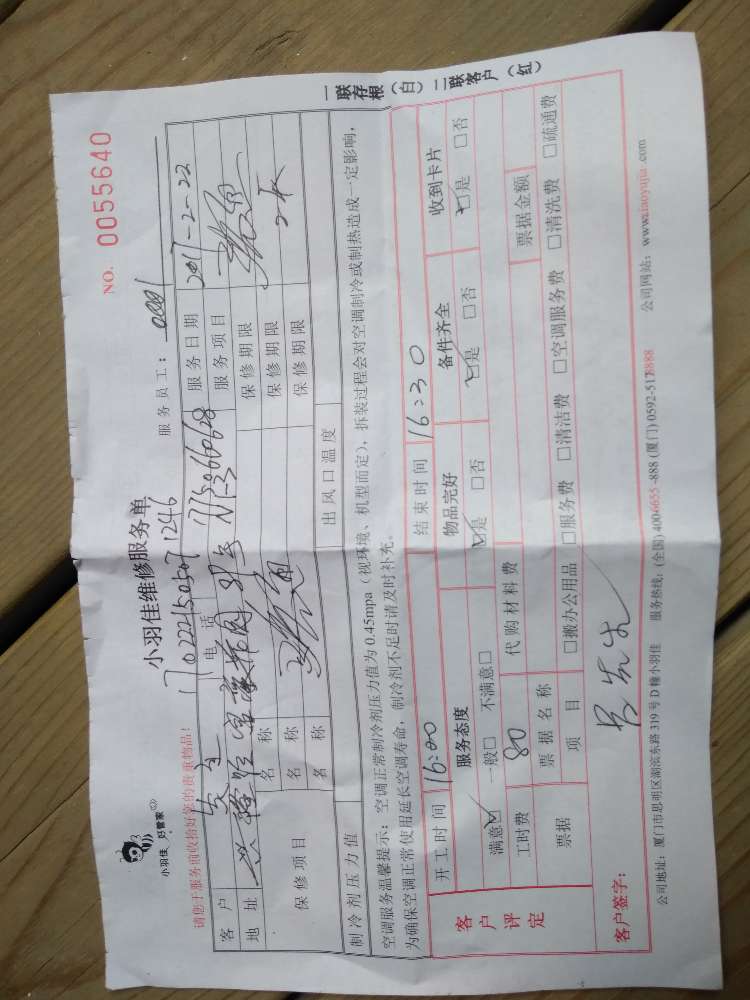 小羽佳 好管家
小羽佳维修服务单
NO. 0055640
1702221505071246
请您于服务前收拾好您的贵重物品！
服务员工：0001
客户 电话 服务日期 2017-2-22
地址 服务项目
保修项目 名称 保修期限
名称 保修期限
名称 保修期限
制冷剂压力值 出风口温度
空调服务温馨提示：空调正常制冷剂压力值为0.45mpa（视环境、机型而定），拆装过程会对空调制冷或制热造成一定影响，
为确保空调正常使用延长空调寿命，制冷剂不足时请及时补充。
一联存根（白） 二联客户（红）
客户评定
开工时间 16:00 结束时间 16:30
服务态度 物品完好 备件齐全 收到卡片
满意☑ 一般□ 不满意□ ☑是 □否 ☑是 □否 ☑是 □否
工时费 80 代购材料费
票据 票据名称 票据金额
项目 □搬办公用品 □服务费 □清洁费 □空调服务费 □清洗费 □疏通费
客户签字：吴先生
公司地址：厦门市思明区湖滨东路319号D幢小羽佳 服务热线：(全国)4006655-888 (厦门)0592-5178888 公司网站：www.xiaoyujia.com